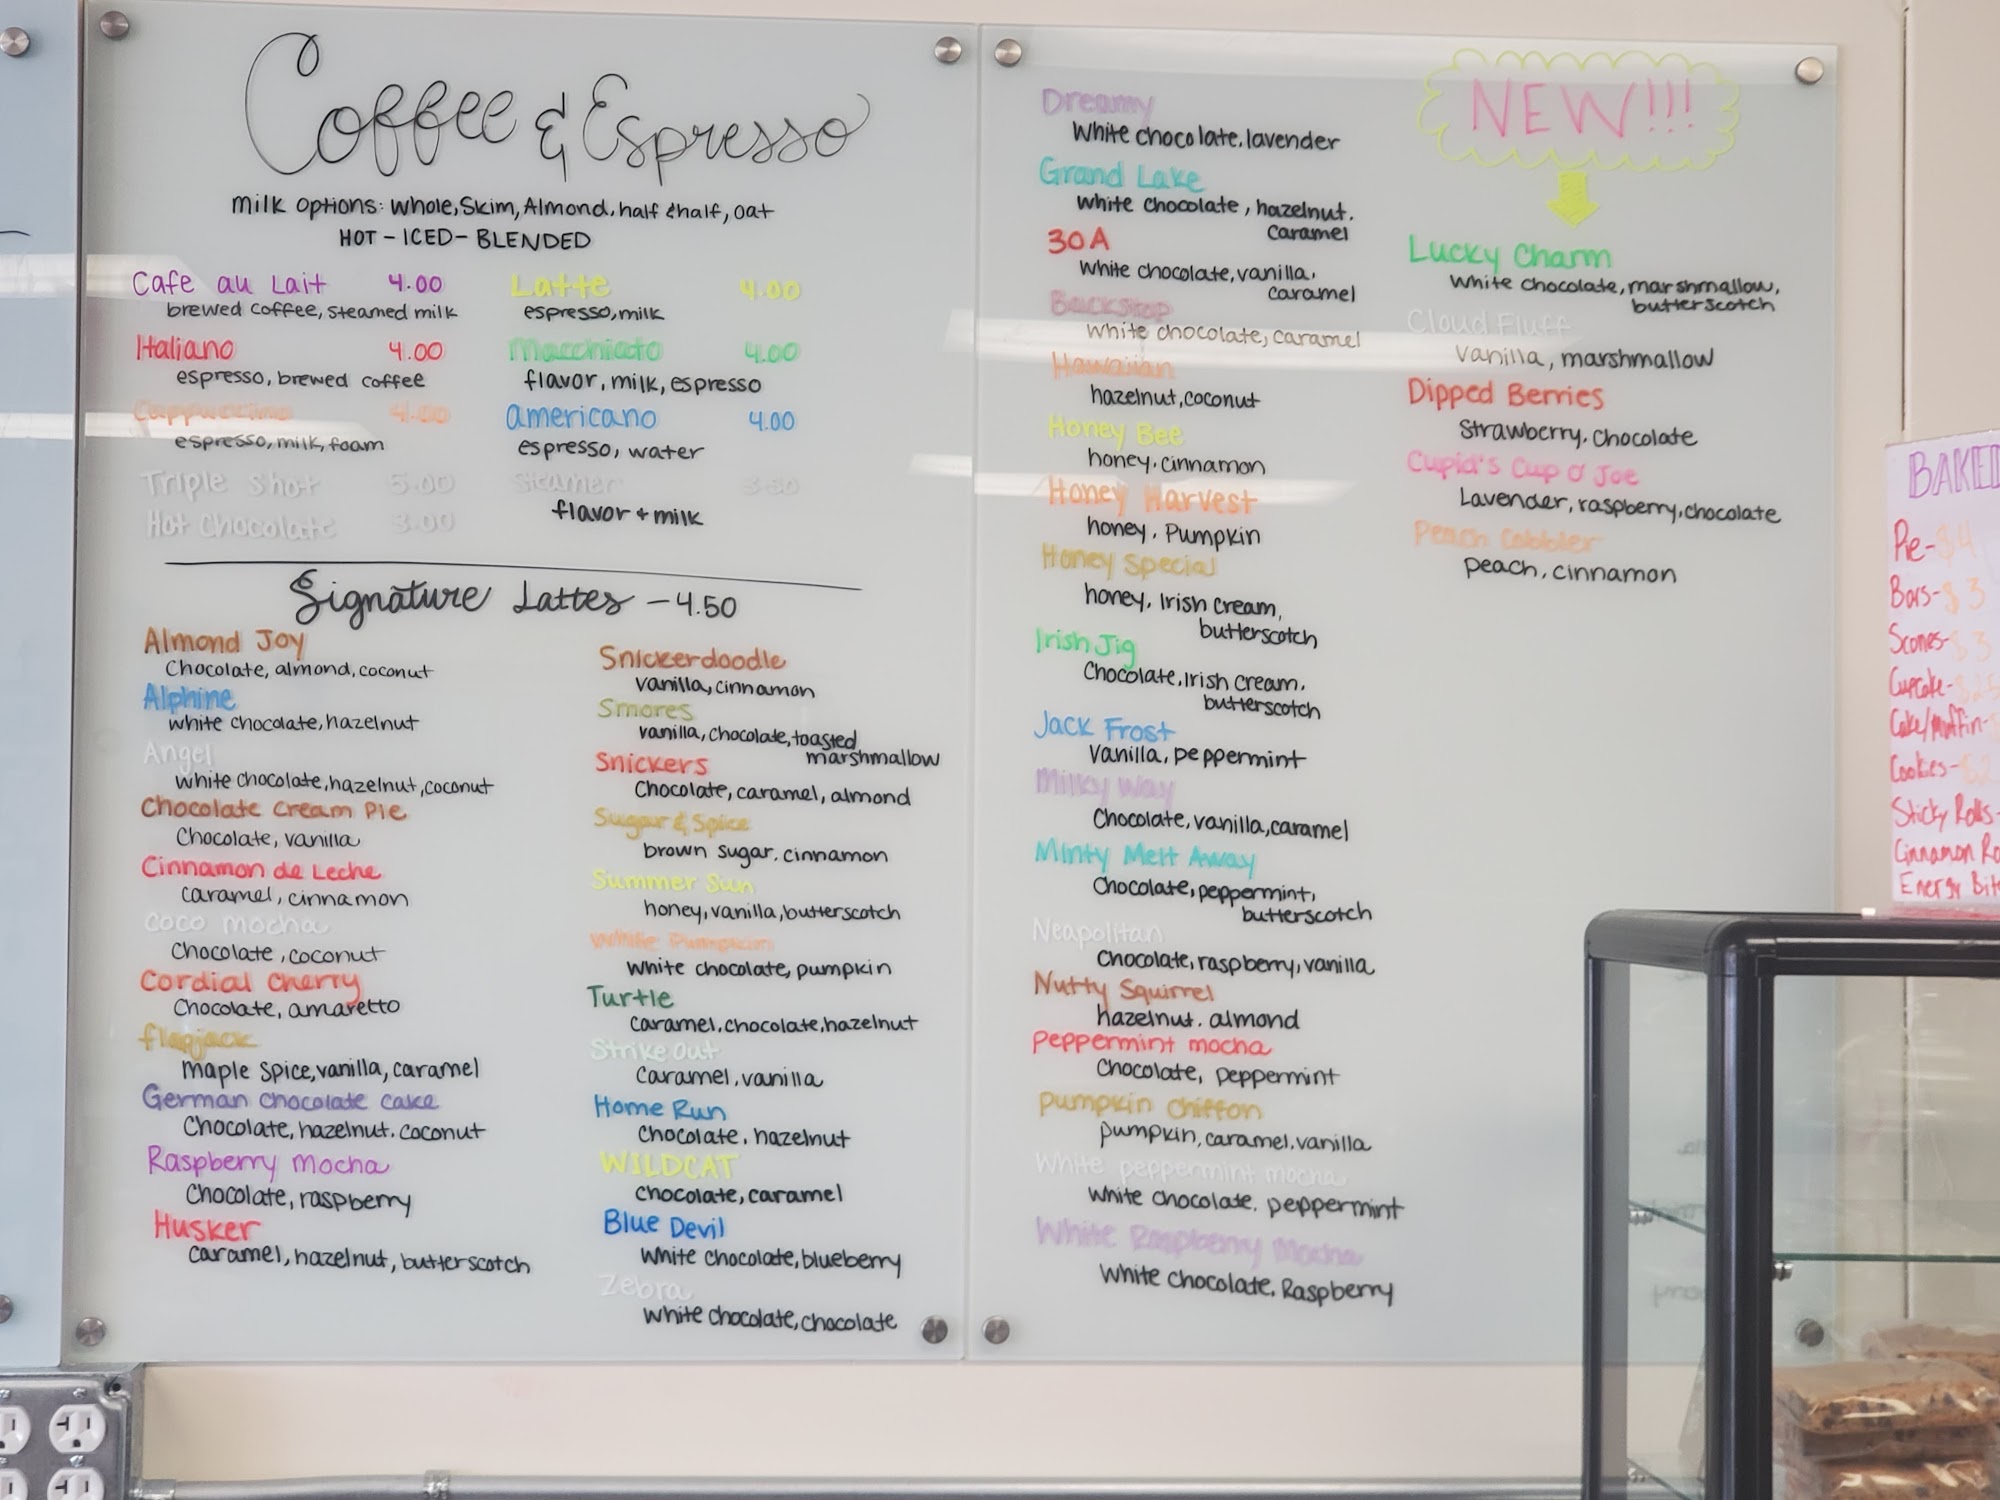 Coffee & Espresso
milk options: whole, Skim, Almond, half & half, oat
HOT - ICED - BLENDED
Cafe au Lait 4.00
brewed coffee, steamed milk
Italiano 4.00
espresso, brewed coffee
Cappuccino 4.00
espresso, milk, foam
Triple Shot 5.00
Hot Chocolate 3.00
Latte 4.00
espresso, milk
Macchiato 4.00
flavor, milk, espresso
americano 4.00
espresso, water
Steamer 3.50
flavor + milk
Signature Lattes - 4.50
Almond Joy
Chocolate, almond, coconut
Alphine
white chocolate, hazelnut
Angel
white chocolate, hazelnut, coconut
Chocolate Cream Pie
Chocolate, vanilla
Cinnamon de Leche
caramel, cinnamon
Coco mocha
Chocolate, coconut
Cordial Cherry
Chocolate, amaretto
flapjack
maple spice, vanilla, caramel
German Chocolate Cake
Chocolate, hazelnut, coconut
Raspberry Mocha
Chocolate, raspberry
Husker
caramel, hazelnut, butterscotch
Snickerdoodle
vanilla, cinnamon
Smores
vanilla, chocolate, toasted
marshmallow
Snickers
Chocolate, caramel, almond
Sugar & Spice
brown sugar, cinnamon
Summer Sun
honey, vanilla, butterscotch
White Pumpkin
white chocolate, pumpkin
Turtle
caramel, chocolate, hazelnut
Strike Out
Caramel, vanilla
Home Run
Chocolate, hazelnut
WILDCAT
Chocolate, caramel
Blue Devil
White chocolate, blueberry
Zebra
White chocolate, chocolate
Dreamy
White chocolate, lavender
Grand Lake
white chocolate, hazelnut,
caramel
30A
White chocolate, vanilla,
caramel
Backstop
white chocolate, caramel
Hawaiian
hazelnut, coconut
Honey Bee
honey, cinnamon
Honey Harvest
honey, Pumpkin
Honey Special
honey, Irish cream,
butterscotch
Irish Jig
Chocolate, Irish cream,
butterscotch
Jack Frost
Vanilla, peppermint
Milky Way
Chocolate, vanilla, caramel
Minty Melt Away
Chocolate, peppermint,
butterscotch
Neapolitan
Chocolate, raspberry, vanilla
Nutty Squirrel
hazelnut, almond
Peppermint mocha
Chocolate, peppermint
Pumpkin Chiffon
pumpkin, caramel, vanilla
White peppermint mocha
White chocolate, peppermint
White Raspberry Mocha
White chocolate, Raspberry
NEW!!!
Lucky Charm
White chocolate, marshmallow,
butterscotch
Cloud Fluff
Vanilla, marshmallow
Dipped Berries
Strawberry, Chocolate
Cupid's Cup O' Joe
Lavender, raspberry, chocolate
Peach Cobbler
peach, cinnamon
BAKED
Pie- $4
Bars- $3
Scones- $3
Cupcake-
Cake/Muffin-
Cookies- $2
Sticky Rolls-
Cinnamon Ro
Energy Bit